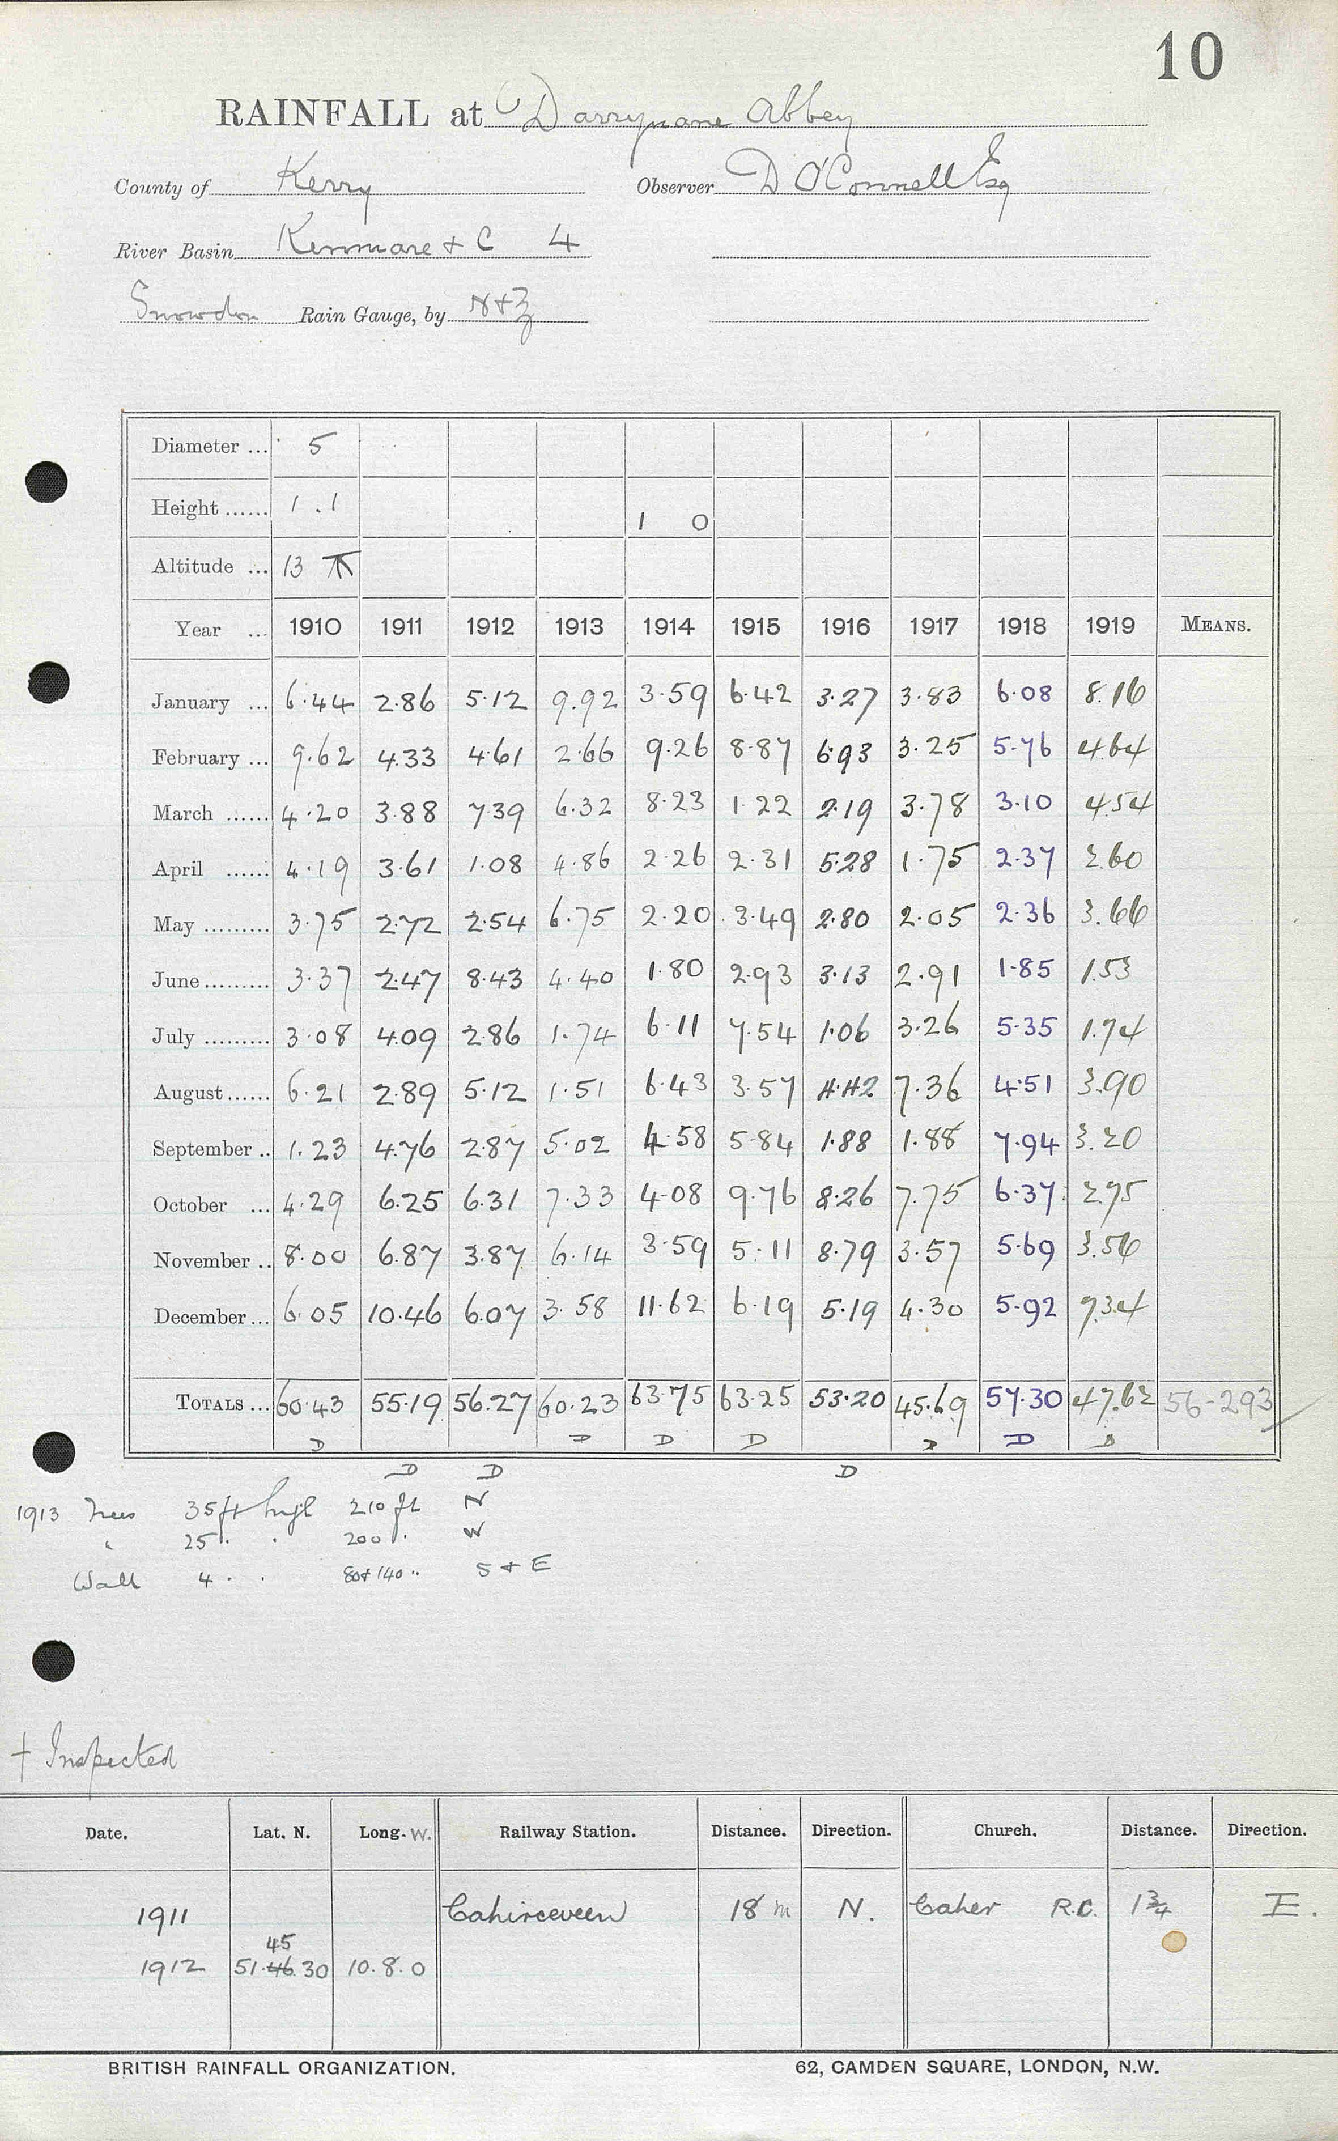 10
RAINFALL at Darrynane Abbey
County of Kerry Observer D O'Connell Esq
River Basin Kenmare & C 4
Snowdon Rain Gauge, by N+Z
Diameter ... 5
Height ...... 1 . 1 1 0
Altitude ... 13
Year ... 1910 1911 1912 1913 1914 1915 1916 1917 1918 1919 MEANS.
January ... 6.44 2.86 5.12 9.92 3.59 6.42 3.27 3.83 6.08 8.16
February ... 9.62 4.33 4.61 2.66 9.26 8.87 6.93 3.25 5.76 4.64
March ...... 4.20 3.88 7.39 6.32 8.23 1.22 2.19 3.78 3.10 4.54
April ...... 4.19 3.61 1.08 4.86 2.26 2.31 5.28 1.75 2.37 2.60
May ......... 3.75 2.72 2.54 6.75 2.20 3.49 2.80 2.05 2.36 3.66
June ......... 3.37 2.47 8.43 4.40 1.80 2.93 3.13 2.91 1.85 1.53
July ......... 3.08 4.09 2.86 1.74 6.11 7.54 1.06 3.26 5.35 1.74
August ...... 6.21 2.89 5.12 1.51 6.43 3.57 4.42 7.36 4.51 3.90
September .. 1.23 4.76 2.87 5.02 4.58 5.84 1.88 1.88 7.94 3.20
October ... 4.29 6.25 6.31 7.33 4.08 9.76 8.26 7.75 6.37 2.75
November .. 8.00 6.87 3.87 6.14 3.59 5.11 8.79 3.57 5.69 3.56
December ... 6.05 10.46 6.07 3.58 11.62 6.19 5.19 4.30 5.92 7.34
TOTALS ... 60.43 55.19 56.27 60.23 63.75 63.25 53.20 45.69 57.30 47.62 56.293
D D D D D D D
D D D
1913 Trees 35 ft high 210 ft N
" 25 " " 200 " W
Wall 4 " " 80+140 " S + E
† Inspected
Date. Lat. N. Long. W. Railway Station. Distance. Direction. Church. Distance. Direction.
1911 Cahirceveen 18 m N. Caher R.C. 1¾ E.
45
1912 51.46.30 10.8.0
BRITISH RAINFALL ORGANIZATION. 62, CAMDEN SQUARE, LONDON, N.W.